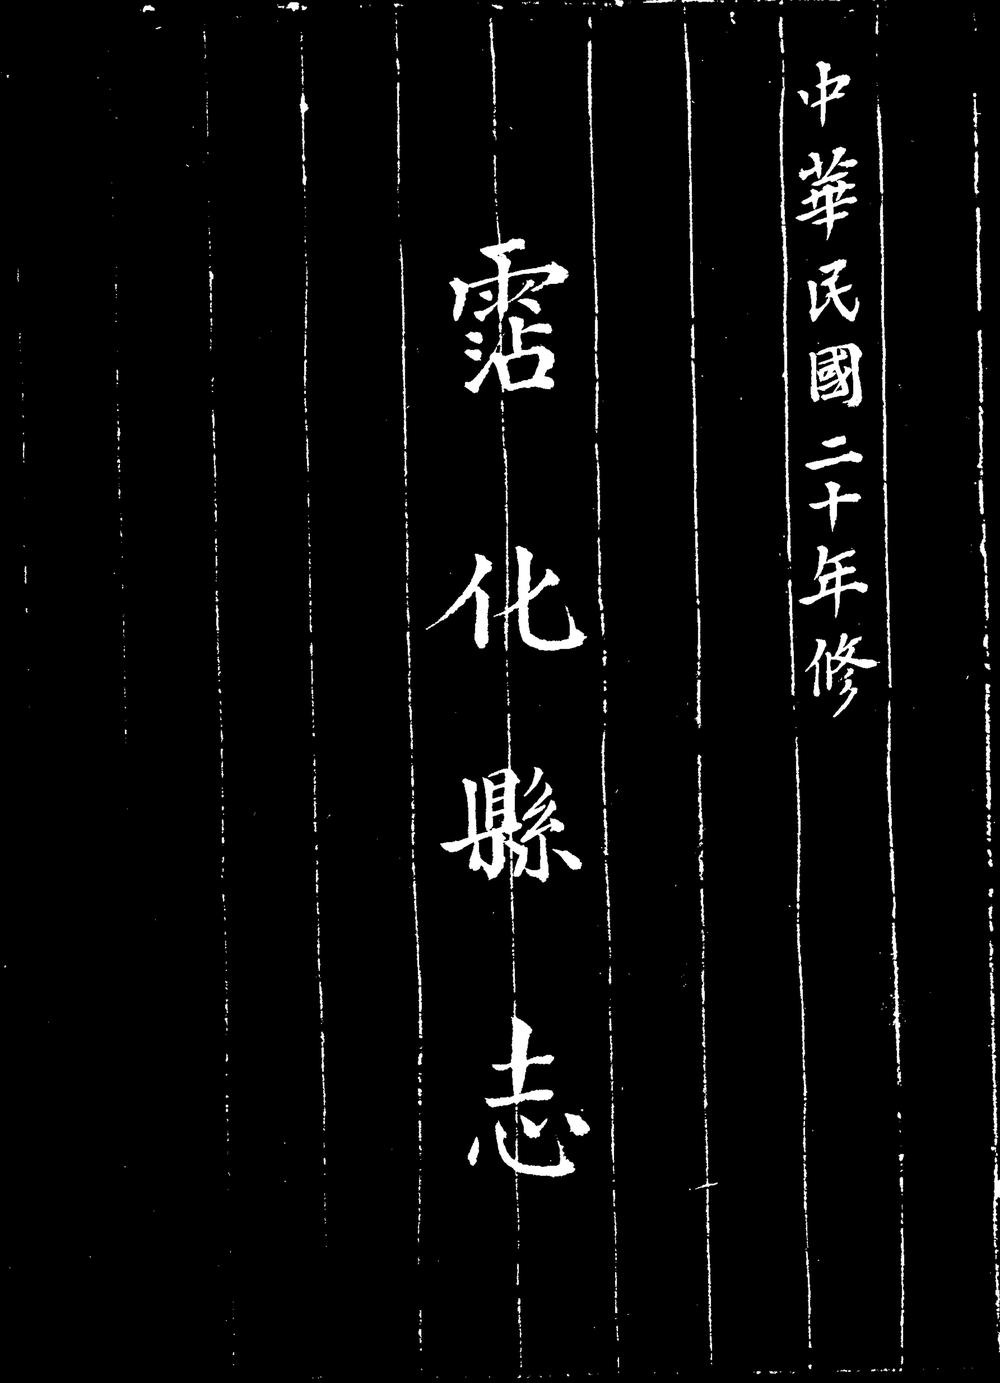 中華民國二十年修
霑化縣志